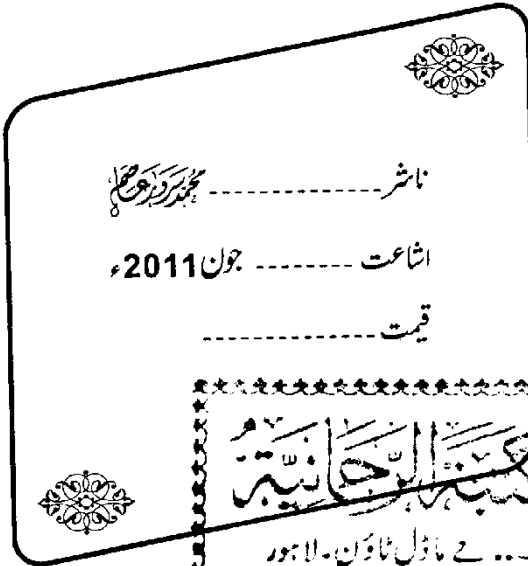 ناشر ---------------- محمد سرور عاصم
اشاعت -------- جون 2011ء
قیمت ----------------
مکتبۃ الرحمانیۃ
... جے ماڈل ٹاؤن۔ لاہور